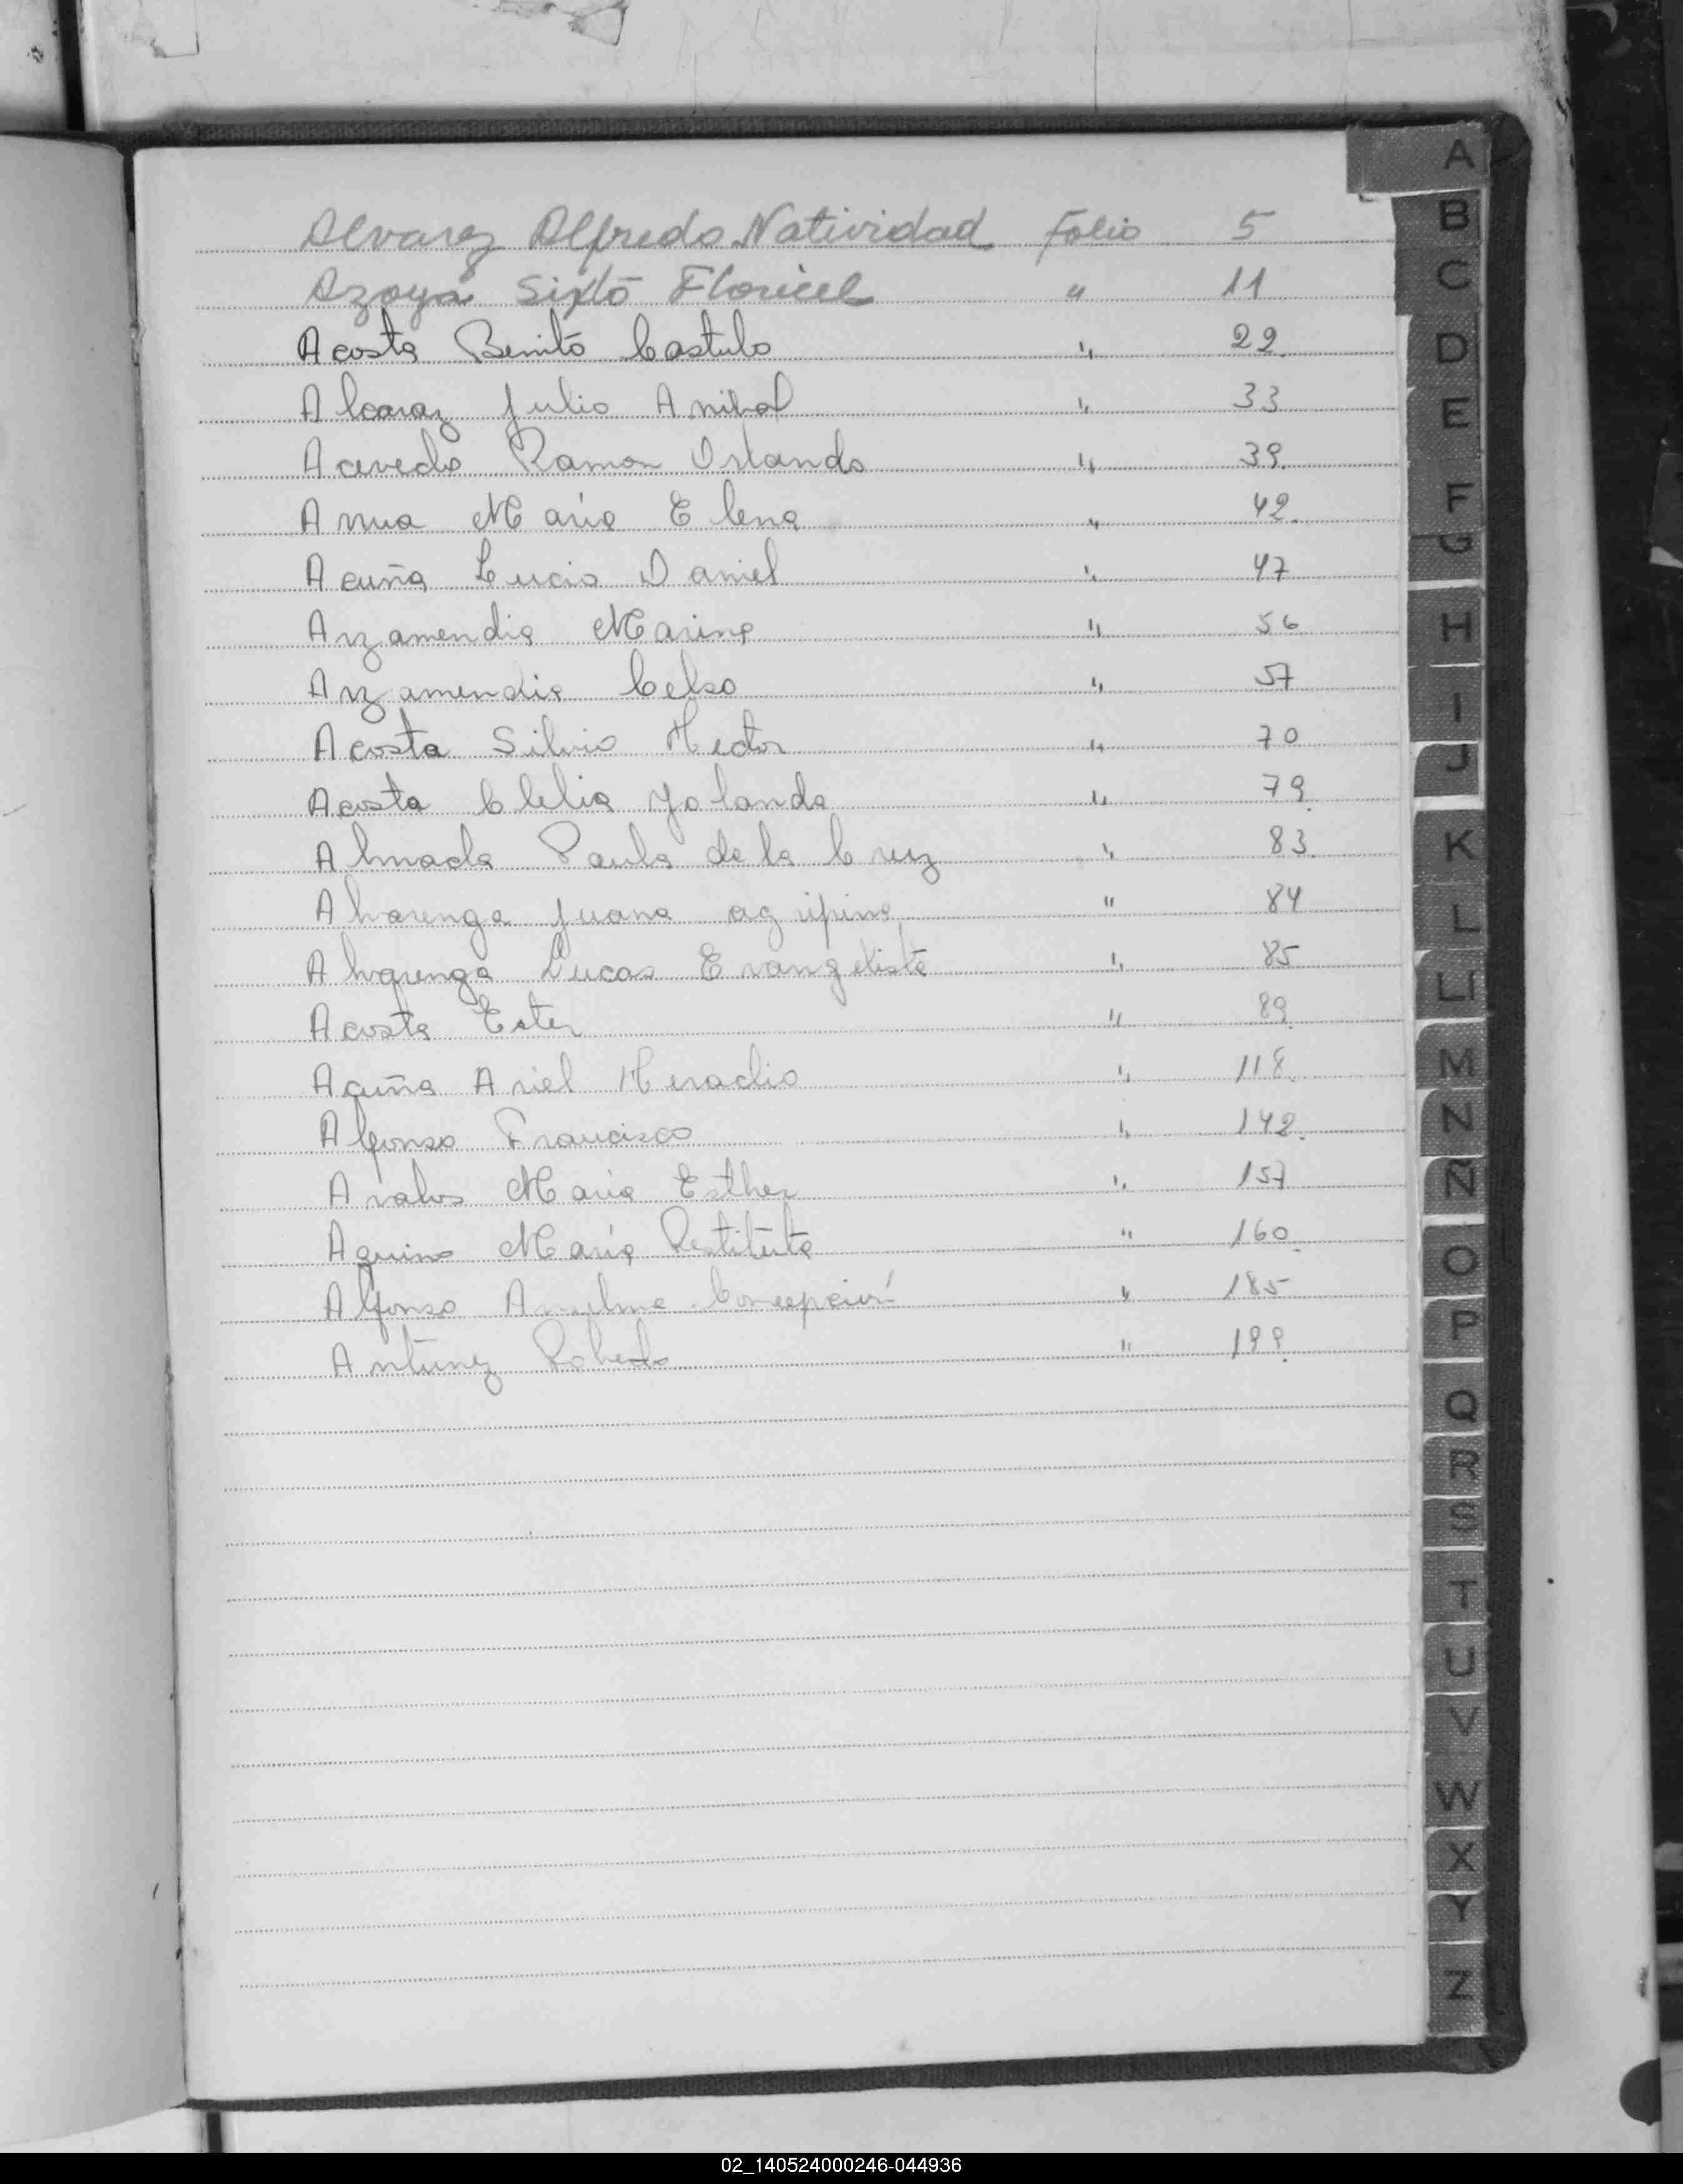 Alvarez Alfredo Natividad Folio 5
Azoya Sixto Floricel " 11
Acosta Benito Castulo " 22
Alcaraz Julio Anibal " 33
Acevedo Ramon Orlando " 39
Anua María Elena " 42
Acuña Lucio Daniel " 47
Arzamendia Marina " 56
Arzamendia Celso " 57
Acosta Silvio Hector " 70
Acosta Clelia Yolanda " 79
Almada Paula de la Cruz " 83
Alvarenga Juana agripina " 84
Alvarenga Lucas Evangelista " 85
Acosta Ester " 89
Acuña Ariel Heraclio " 118
Alfonso Francisco " 142
Avalos Maria Esther " 157
Aquino María Restituta " 160
Alfonso Anselma Concepción " 185
Antunez Roberto " 199
A
B
C
D
E
F
G
H
I
J
K
L
Ll
M
N
Ñ
O
P
Q
R
S
T
U
V
W
X
Y
Z
02_140524000246-044936